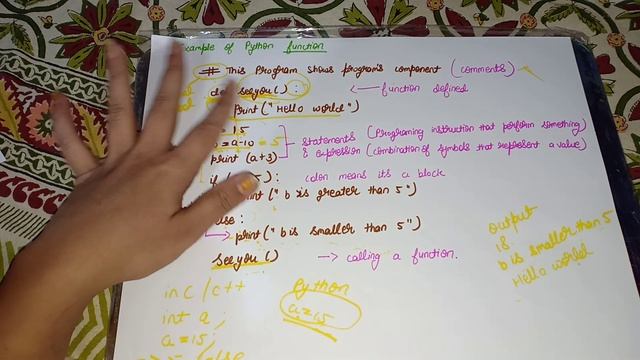 Example of Python function
# This Program shows program's component (comments)
seeyou() : <— function defined
print("Hello world")
= 15
= a-10 = 5 statements (Programing instruction that perform something)
print (a+3) & expression (combination of symbols that represent a value)
5) : colon means its a block
("b is greater than 5")
else :
print("b is smaller than 5")
seeyou() -> calling a function.
output
is.
b is smaller than 5
Hello world
in c / c++
int a ;
a = 15 ;
Python
a = 15